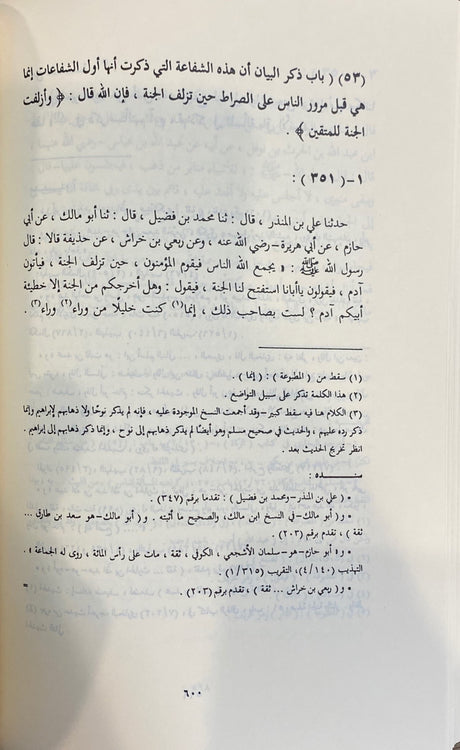 (٥٣) ( باب ذكر البيان أن هذه الشفاعة التي ذكرت أنها أول الشفاعات إنما
هي قبل مرور الناس على الصراط حين تزلف الجنة ، فإن الله قال : ﴿ وأزلفت
الجنة للمتقين ﴾ .
١- ( ٣٥١ ) :
حدثنا علي بن المنذر ، قال : ثنا محمد بن فضيل ، قال : ثنا أبو مالك ، عن أبي
حازم ، عن أبي هريرة - رضي الله عنه ، وعن ربعي بن خراش ، عن حذيفة قالا : قال
رسول الله ﷺ : « يجمع الله الناس فيقوم المؤمنون ، حين تزلف الجنة ، فيأتون
آدم ، فيقولون ياأبانا استفتح لنا الجنة ، فيقول : وهل أخرجكم من الجنة إلا خطيئة
أبيكم آدم ؟ لست بصاحب ذلك ، إنما(١) كنت خليلًا من وراء(٢) وراء(٣) .
(١) سقط من ( المطبوعة ) : ( إنما ) .
(٢) هذا الكلمة تذكر على سبيل التواضع .
(٣) الكلام هنا فيه سقط كبير - وقد أجمعت النسخ الموجودة عليه ، فإنه لم يذكر نوحًا ولا ذهابهم لإبراهيم وإنما
ذكر رده عليهم ، والحديث في صحيح مسلم وهو أيضًا لم يذكر ذهابهم إلى نوح ، وإنما ذكر ذهابهم إلى إبراهيم .
انظر تخريج الحديث بعد .
سنــــده :
• ( علي بن المنذر - ومحمد بن فضيل ) : تقدما برقم (٣٤٧)
• و ( أبو مالك - في النسخ ابن مالك ، والصحيح ما أثبته . و ( أبو مالك - هو سعد بن طارق ...
ثقة ) ، تقدم برقم (٢٠٣) .
• و« أبو حازم - هو - سلمان الأشجعي ، الكوفي ، ثقة ، مات على رأس المائة ، روى له الجماعة » .
التهذيب (٤/١٤٠) ، التقريب (١/٣١٥) .
• و ( ربعي بن خراش ... ثقة ) ، تقدم برقم (٢٠٣) . =
٦٠٠